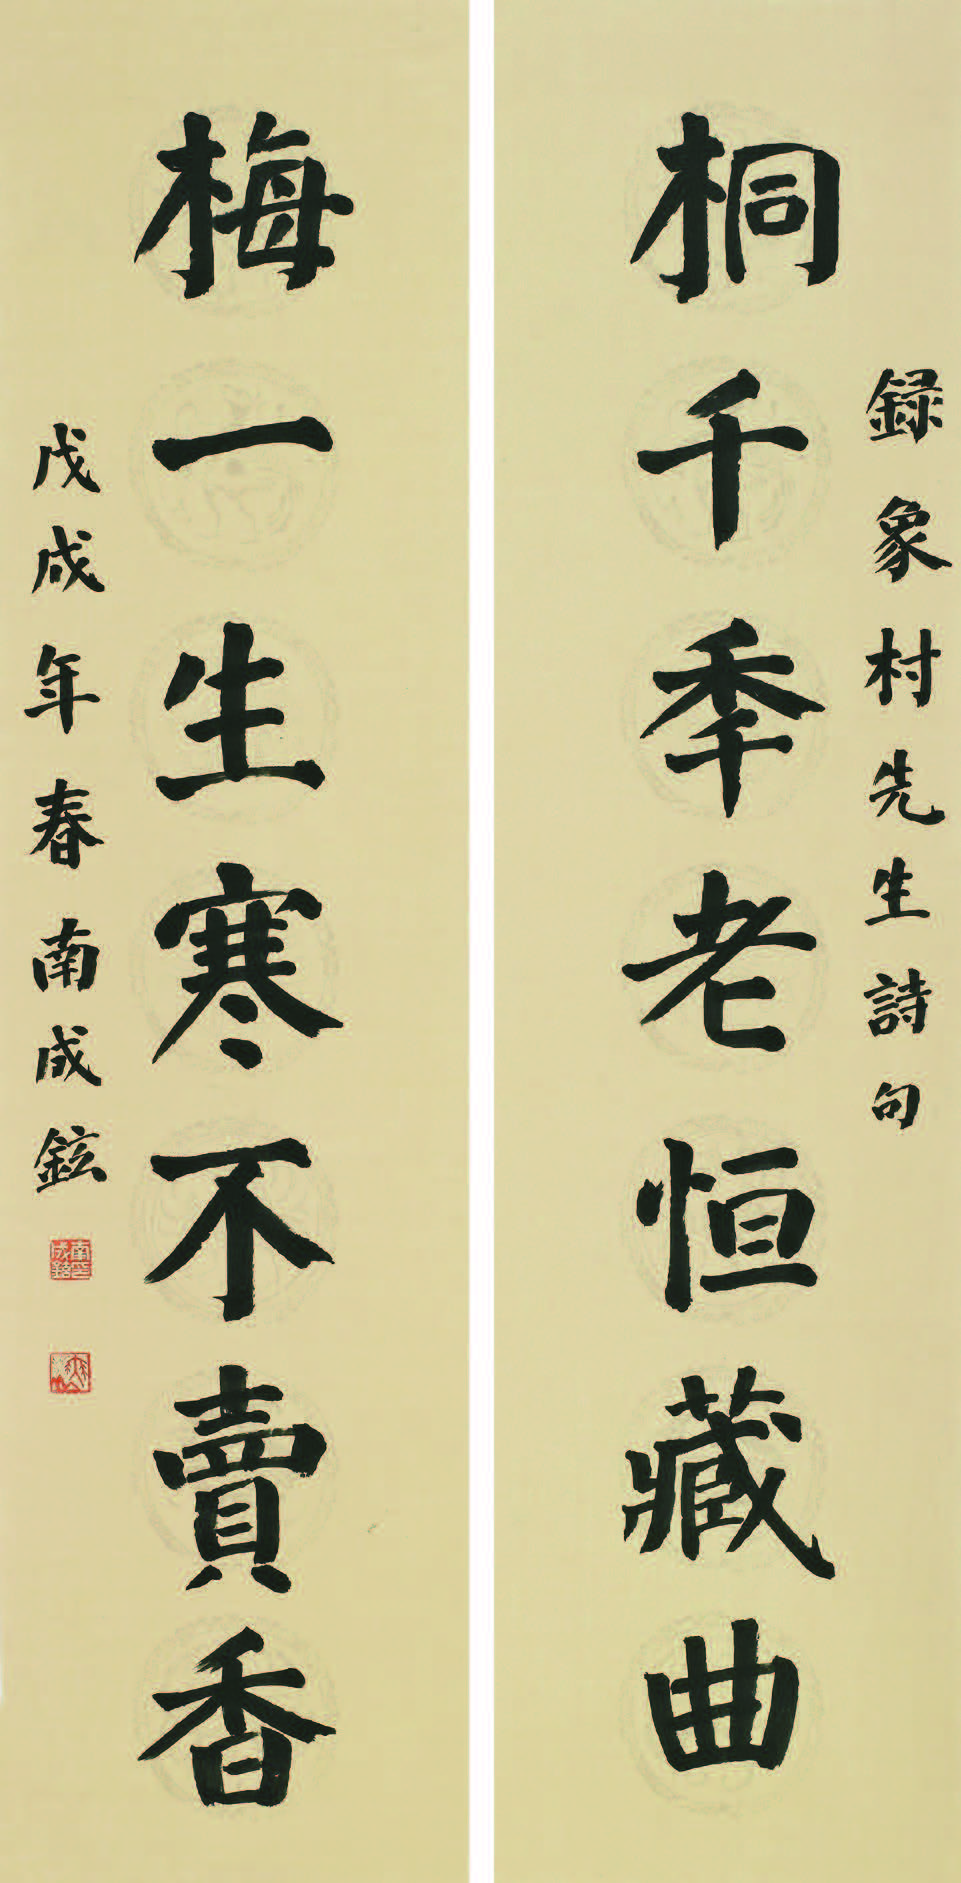 録象村先生詩句
桐千秊老恒藏曲
梅一生寒不賣香
戊戌年春南成鉉